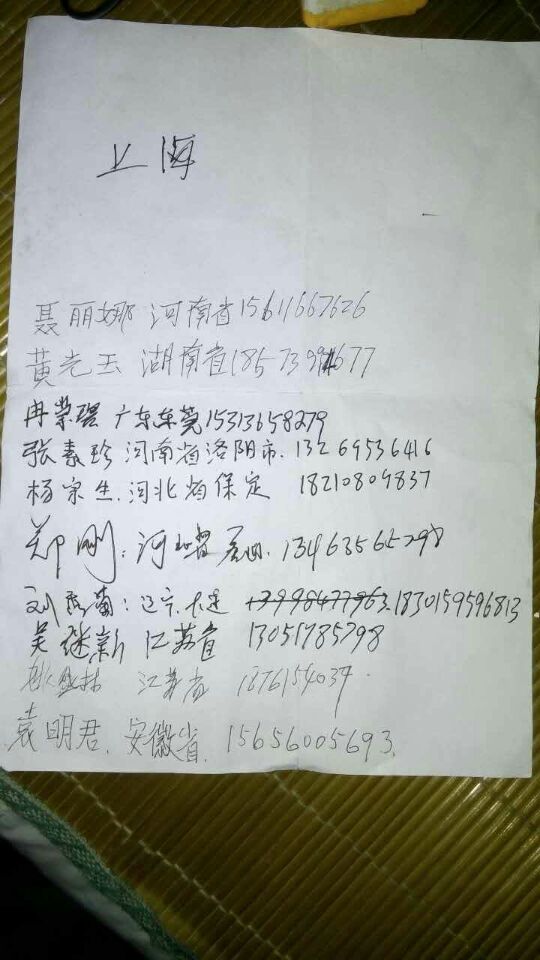 上海
聂丽娜 河南省15611667626
黄先玉 湖南省
冉崇碧 广东东莞15313658279
张素珍 河南省洛阳市. 13269536416
杨宗生. 河北省保定 18210809837
郑刚: 河北省 13463565298
刘 : 辽宁. 大连 1830159596813
吴继新 江苏省 13051785798
江苏省 1876154037.
袁明君. 安徽省. 15656005693.